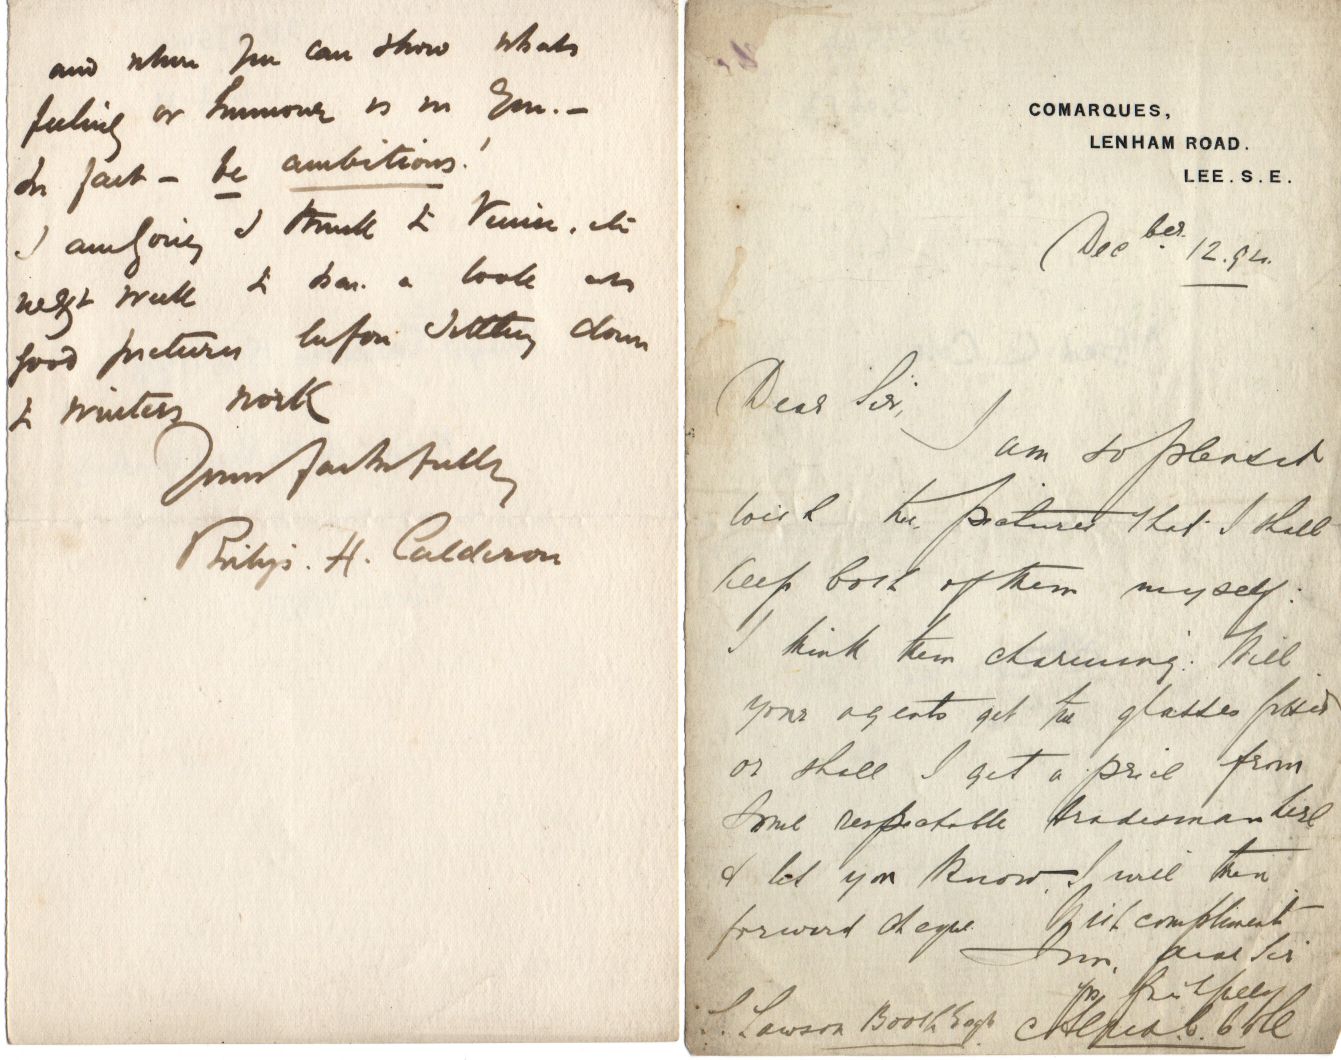 and where you can show whats
feeling or humour is in you. –
In fact – be ambitious!
I am going I think to Venice. 
next week to have a look at
good pictures before settling down
to winters work
Yours faithfully
Philip. H. Calderon
COMARQUES,
LENHAM ROAD.
LEE. S. E.
Decber. 12. 94.
Dear Sir,
I am so pleased
with the pictures that I shall
keep both of them myself:
I think them charming. Will
your agents get the glasses fitted
or shall I get a price from
some respectable tradesman here
& let you know. I will then
forward cheque With compliments
I am, dear Sir
yrs faithfully
S. Lawson Booth Esqr Alfred C. Cole